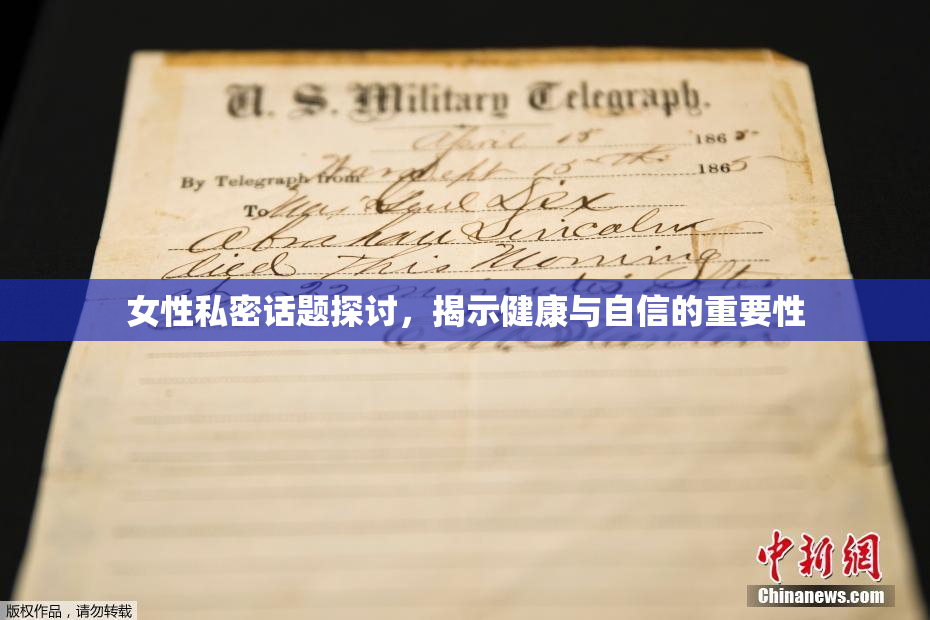 U. S. Military Telegraph.
April 15 1865
By Telegraph from War Dept 15th 1865
To Maj Genl Dix
Abraham Lincoln
died This Morning
at 22 minutes after
女性私密话题探讨，揭示健康与自信的重要性
E. M. Stanton
中新网
Chinanews.com
版权作品，请勿转载